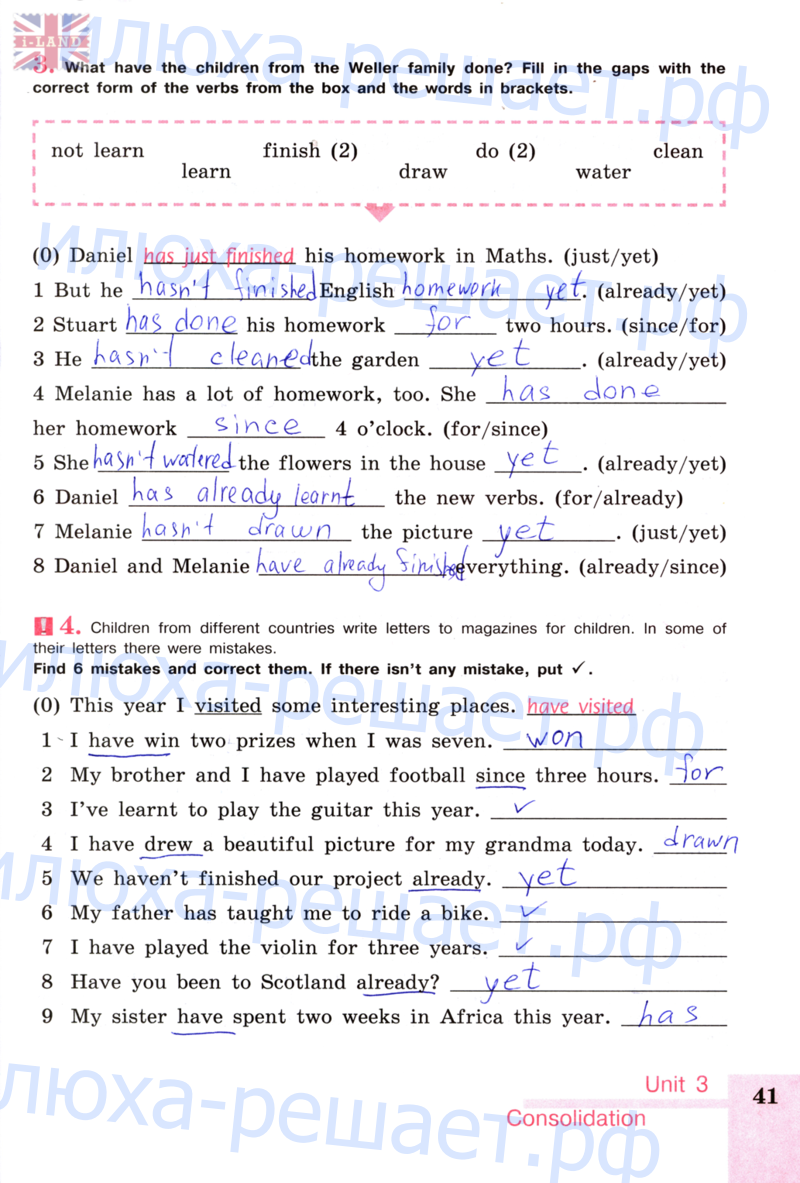 i-LAND
илюха-решает.рф
3. What have the children from the Weller family done? Fill in the gaps with the
correct form of the verbs from the box and the words in brackets.
not learn finish (2) do (2) clean
learn draw water
илюха-решает.рф
(0) Daniel has just finished his homework in Maths. (just/yet)
1 But he hasn't finished English homework yet. (already/yet)
2 Stuart has done his homework for two hours. (since/for)
3 He hasn't cleaned the garden yet. (already/yet)
4 Melanie has a lot of homework, too. She has done
her homework since 4 o'clock. (for/since)
5 She hasn't watered the flowers in the house yet. (already/yet)
6 Daniel has already learnt the new verbs. (for/already)
7 Melanie hasn't drawn the picture yet. (just/yet)
8 Daniel and Melanie have already finished everything. (already/since)
! 4. Children from different countries write letters to magazines for children. In some of
their letters there were mistakes.
Find 6 mistakes and correct them. If there isn't any mistake, put ✓.
илюха-решает.рф
(0) This year I visited some interesting places. have visited
1 I have win two prizes when I was seven. won
2 My brother and I have played football since three hours. for
3 I've learnt to play the guitar this year. ✓
4 I have drew a beautiful picture for my grandma today. drawn
5 We haven't finished our project already. yet
илюха-решает.рф
6 My father has taught me to ride a bike. ✓
7 I have played the violin for three years. ✓
8 Have you been to Scotland already? yet
9 My sister have spent two weeks in Africa this year. has
Unit 3
41
Consolidation
илюха-решает.рф